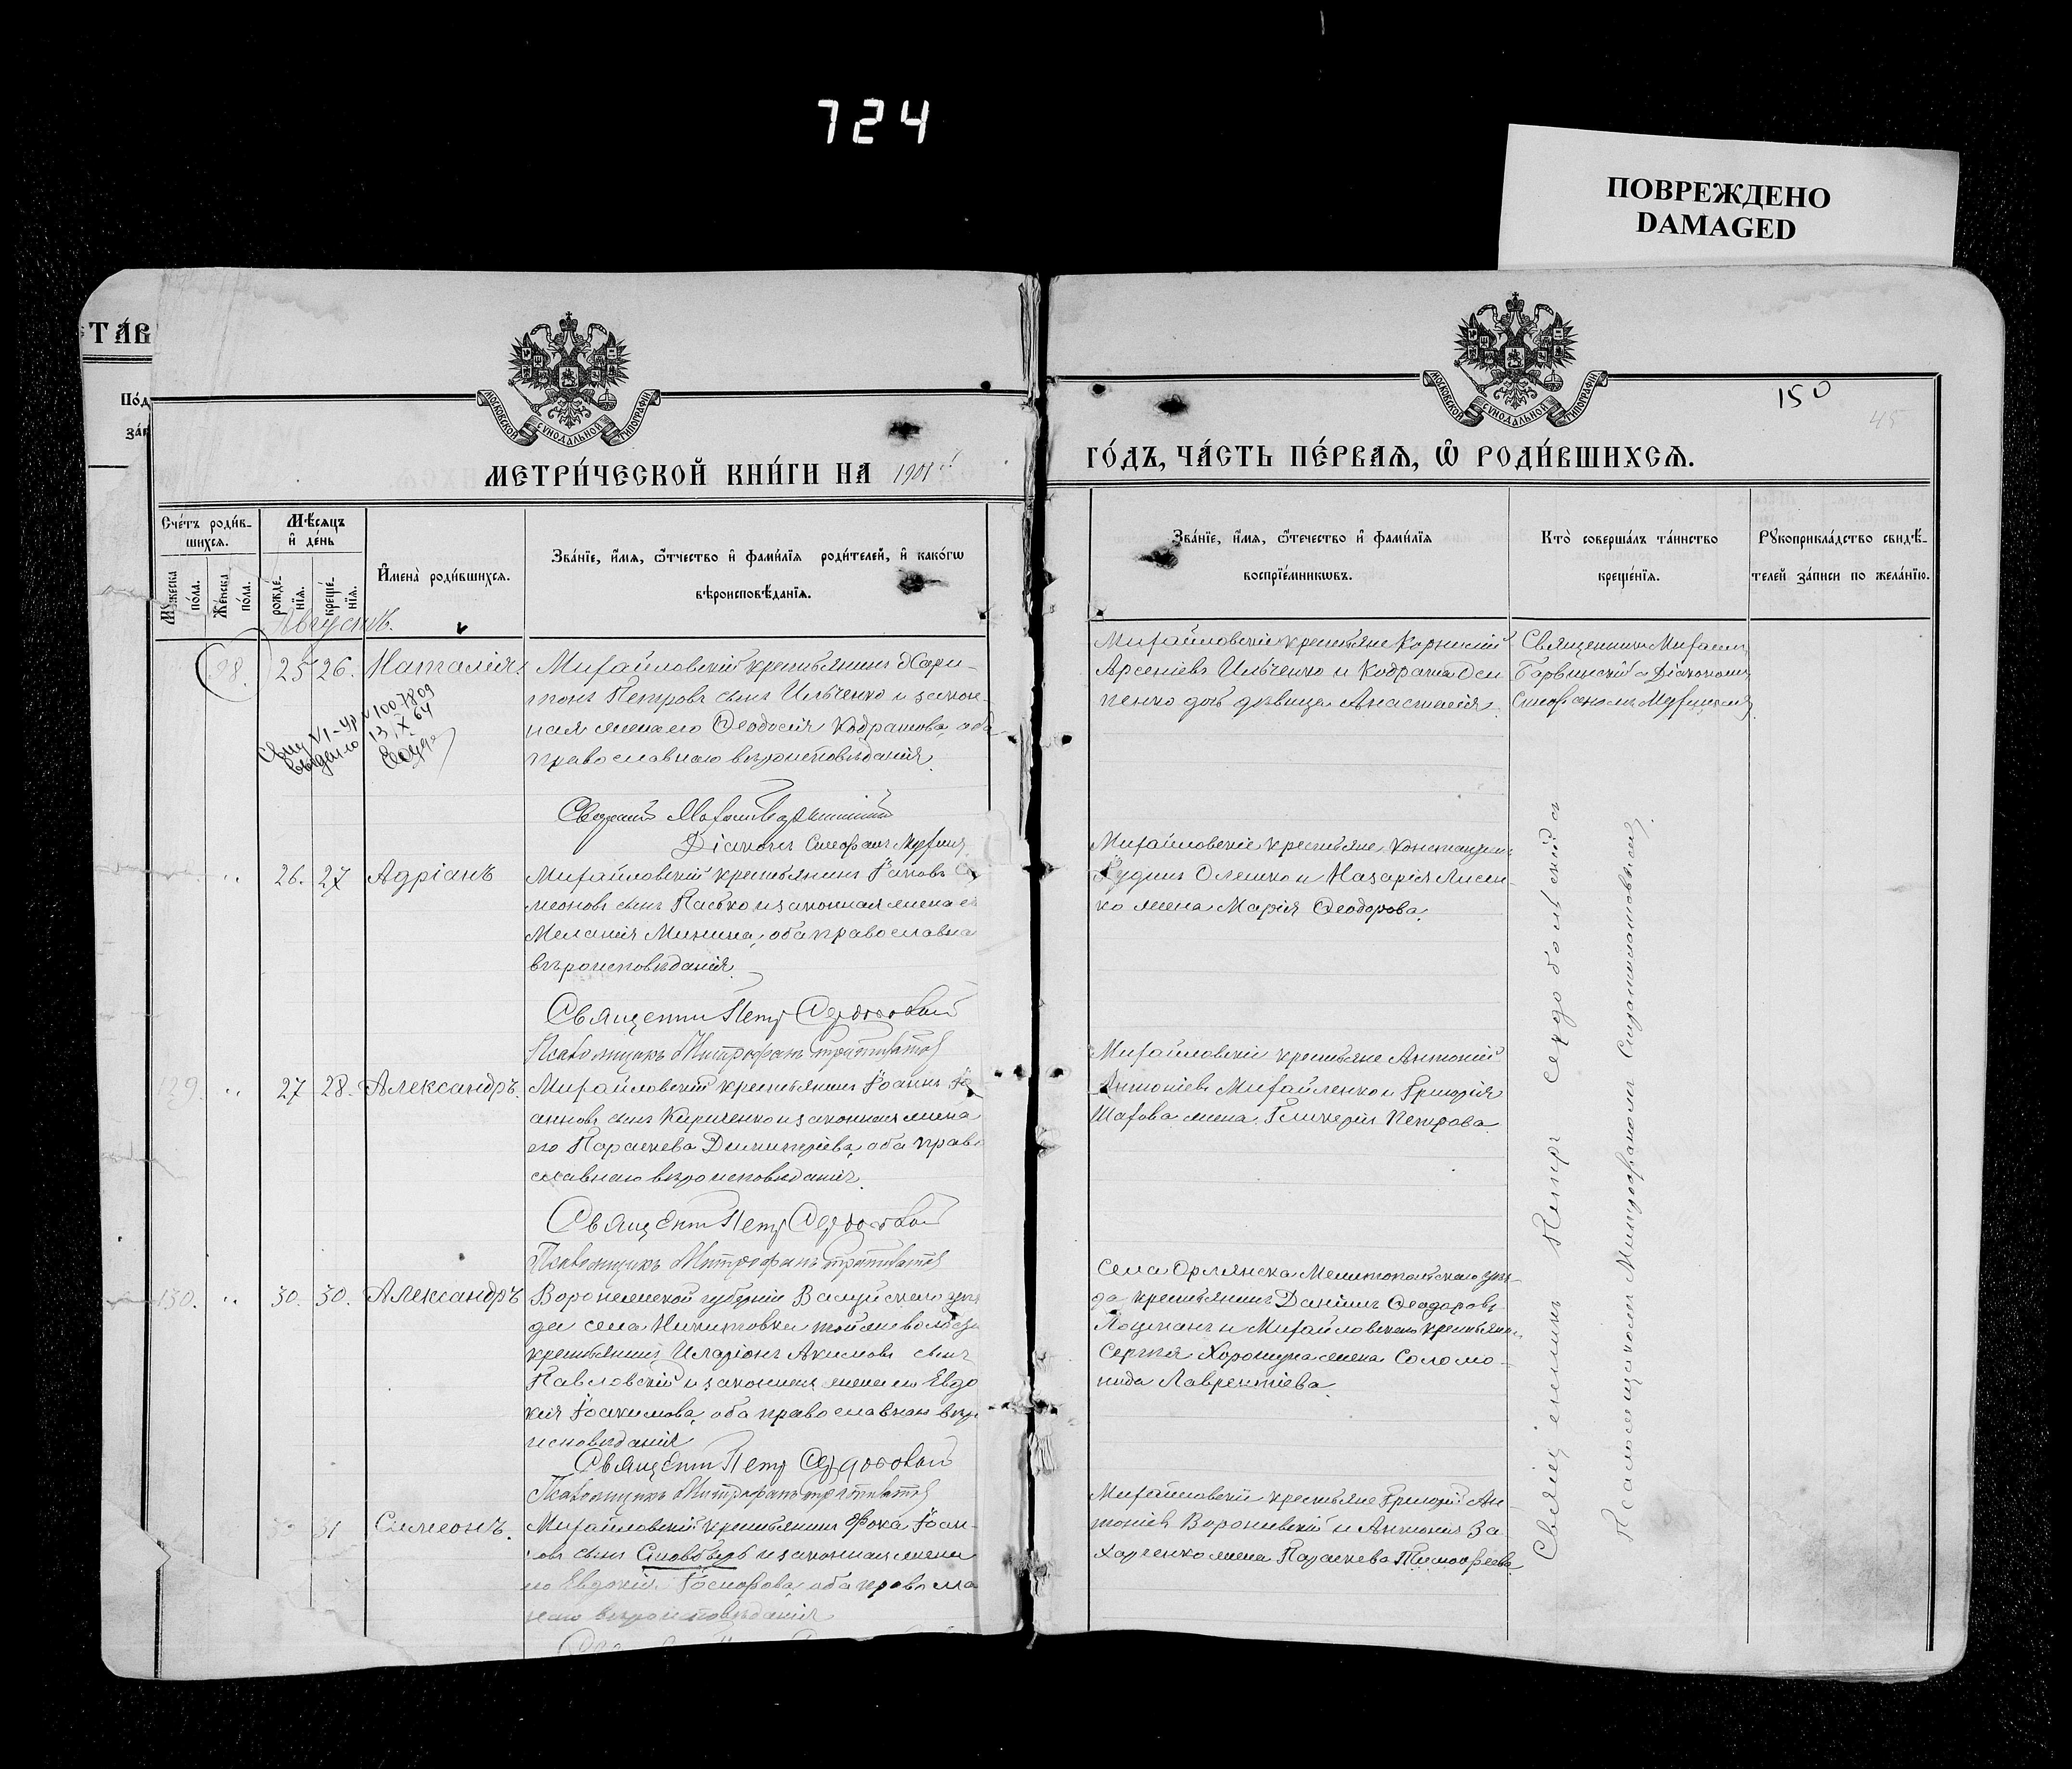 724
ПОВРЕЖДЕНО
DAMAGED
ТА́В
По́д
за́п
МОСКОВСКОЙ СѴНОДАЛЬНОЙ ТИПОГРАФІИ
МОСКОВСКОЙ СѴНОДАЛЬНОЙ ТИПОГРАФІИ
150
45
МЕТРИ́ЧЕСКОЙ КНИ́ГИ НА 1901 ГО́ДЪ, ЧА́СТЬ ПЕ́РВАѦ, Ѡ РОДИ́ВШИХСѦ.
Сче́тъ роди́в-
шихсѧ.
Мꙋ́жеска по́ла.
Же́нска по́ла.
Мѣ́сѧцъ и де́нь
рожде́-
нїѧ.
креще́-
нїѧ.
Имена̀ роди́вшихсѧ.
Зва́нїе, и́мѧ, ѻ́тчество и фами́лїѧ роди́телей, и како́гѡ
вѣроисповѣ́данїѧ.
Зва́нїе, и́мѧ, ѻ́течество и фами́лїѧ
воспрїе́мникѡвъ.
Кто̀ соверша́лъ та́инство
креще́нїѧ.
Рꙋкоприкла́дство свидѣ́-
телей за́писи по жела́нїю.
Августъ.
98. 25 26. Наталія
Михайловскій крестьянинъ Хари-
тонъ Петровъ сынъ Ильченко и закон-
ная жена его Ѳеодосія Кодратова, оба
православнаго вѣроисповѣданія.
Михайловскіе крестьяне Корнилій
Арсеніевъ Ильченко и Кодрата Оси
пенко дочь дѣвица Анастасія.
Священникъ Михаилъ
Барвинскій с Діакономъ
выдано 13 X 64
Діаконъ Стефанъ
„ 26. 27 Адріанъ
Михайловскій крестьянинъ Іаковъ Си
меоновъ сынъ Пасько и законная жена ег
Меланія Минина, оба православна
вѣроисповѣданія.
Михайловскіе крестьяне Константин
Іудинъ Олешко и Назарія Лисен-
ко жена Марія Ѳеодорова.
Священникъ Петръ Сердобольскій
Псаломщикъ Митрофанъ
129. „ 27 28. Александръ.
Михайловскій крестьянинъ Іоаннъ Іо
анновъ сынъ Кириченко и законная жена
его Параскева Димитріева, оба право
славнаго вѣроисповѣданія.
Михайловскіе крестьяне Антоній
Антоніевъ Михайленко и Григорія
Шахова жена Гликерія Петрова.
Священникъ Петръ Сердобольскій
Псаломщикъ Митрофанъ
130. „ 30. 30. Александръ
Воронежской губерніи Валуйскаго уѣз
да села Никитовки той же волости
крестьянинъ Иларіонъ Акимовъ сынъ
Павловскій и законная жена его Евдо
кія Іоакимова, оба православнаго вѣро
исповѣданія
Села Орлянска Мелитопольскаго уѣз-
да крестьянинъ Даніилъ Ѳеодоровъ
Лоцманъ и Михайловскаго крестьянина
Сергія Хорошуна жена Соломо-
нида Лаврентіева.
Священникъ Петръ Сердобольскій
Псаломщикъ Митрофанъ
30 31 Симеонъ.
Михайловскій крестьянинъ Фока Іоан-
новъ сынъ и законная жена
его Евдокія Іосифова, оба правосла
наго вѣроисповѣданія
Михайловскіе крестьяне Григорій Ан-
тоніевъ Вороневскій и Антонія За
харченко жена Параскева Тимофеева.
Священникъ Петръ Сердобольскій съ
Псаломщикомъ Митрофаномъ